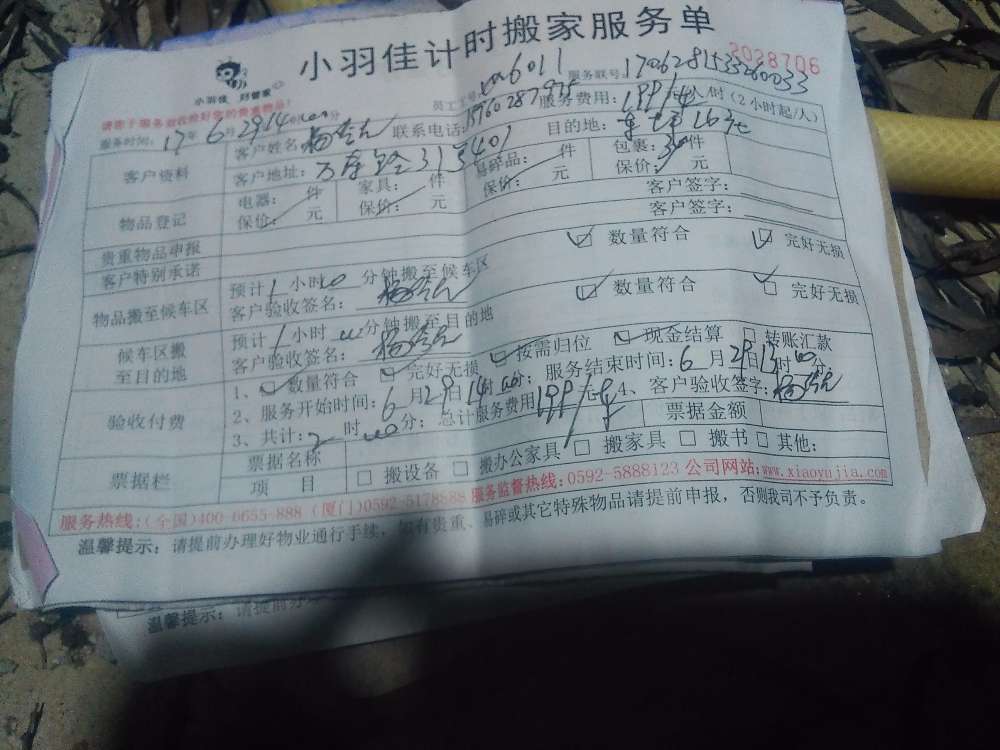 小羽佳计时搬家服务单
2028706
小羽佳 好管家
请您于服务前收捡好您的贵重物品!
员工工号: xm6011 服务联号: 
服务时间: 17年6月29日14时00分
客户资料 客户姓名: 联系电话: 服务费用: 199/车 人/时 (2小时起/人)
客户地址: 313401 目的地:
物品登记 电器: 件 家具: 件 易碎品: 件 包裹: 30件
保价: 元 保价: 元 保价: 元 保价: 元
贵重物品申报 客户签字:
客户特别承诺 客户签字:
物品搬至候车区 预计1小时0分钟搬至候车区 ☑ 数量符合 ☑ 完好无损
客户验收签名:
候车区搬至目的地 预计1小时00分钟搬至目的地 ☑ 数量符合 ☑ 完好无损
客户验收签名:
验收付费 1、☑ 数量符合 ☑ 完好无损 ☑ 按需归位 ☑ 现金结算 □ 转账汇款
2、服务开始时间: 6月29日14时00分; 服务结束时间: 6月29日13时00分
3、共计: 2时00分; 总计服务费用 199/车 4、客户验收签字:
票据栏 票据名称 票据金额
项 目 □ 搬设备 □ 搬办公家具 □ 搬家具 □ 搬书 □ 其他:
服务热线:(全国)400-6655-888 (厦门)0592-5178588 服务监督热线:0592-5888123 公司网站:www.xiaoyujia.com
温馨提示: 请提前办理好物业通行手续, 如有贵重、易碎或其它特殊物品请提前申报, 否则我司不予负责。
温馨提示: 请提前办